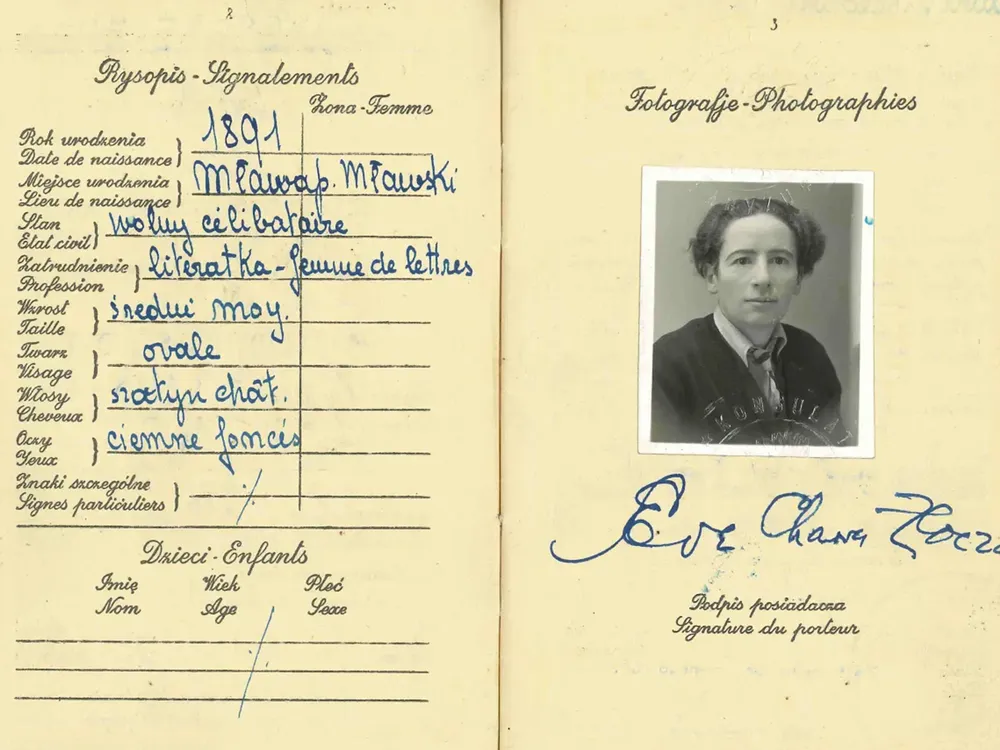 2
Rysopis - Signalements
Żona - Femme
Rok urodzenia
Date de naissance
1891
Miejsce urodzenia
Lieu de naissance
Mława p. Mławski
Stan
Etat civil
wolny célibataire
Zatrudnienie
Profession
literatka - femme de lettres
Wzrost
Taille
średni moy.
Twarz
Visage
ovale
Włosy
Cheveux
szatyn chât.
Oczy
Yeux
ciemne foncés
Znaki szczególne
Signes particuliers
Dzieci - Enfants
Imię Wiek Płeć
Nom Age Sexe
3
Fotografje - Photographies
KONSULAT
Eve Chawa Złocz
Podpis posiadacza
Signature du porteur